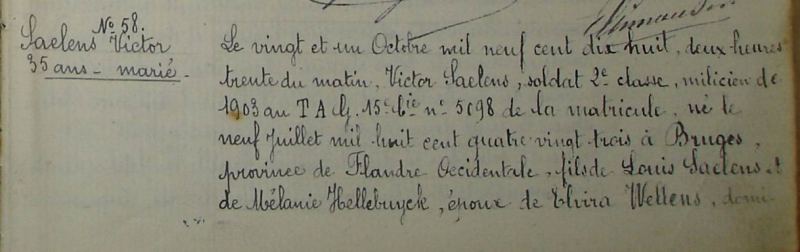 Nº 58.
Saelens Victor
35 ans - marié -
Le vingt et un Octobre mil neuf cent dix huit, deux heures
trente du matin, Victor Saelens, soldat 2e classe, milicien de
1903 au T A G. 15e Cie nº 5098 de la matricule, né le
neuf Juillet mil huit cent quatre vingt trois à Bruges,
province de Flandre Occidentale, fils de Louis Saelens et
de Mélanie Hellebuyck, époux de Elvira Wellens, domi-